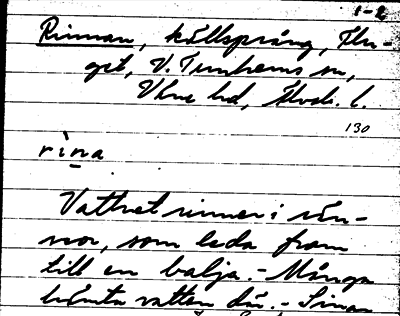 1-2
Rinnan, källsprång, Flu-
get, V. Tunhems sn,
Väne hd, Älvsb. l.
130
rina
Vattnet rinner i rän-
nor, som leda fram
till en balja. - Många
hämta vatten där. -